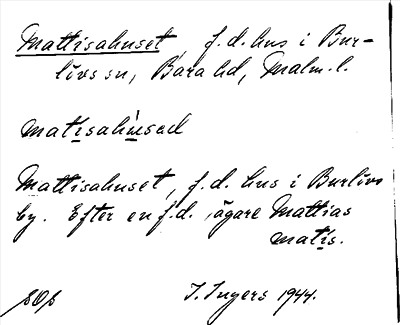 Mattisahuset, f.d. hus i Bur-
lövs sn, Bara hd, Malm. l.
matisahused
Mattisahuset, f.d. hus i Burlövs
by. Efter en f.d. ägare Mattias
matis.
I. Ingers 1944.